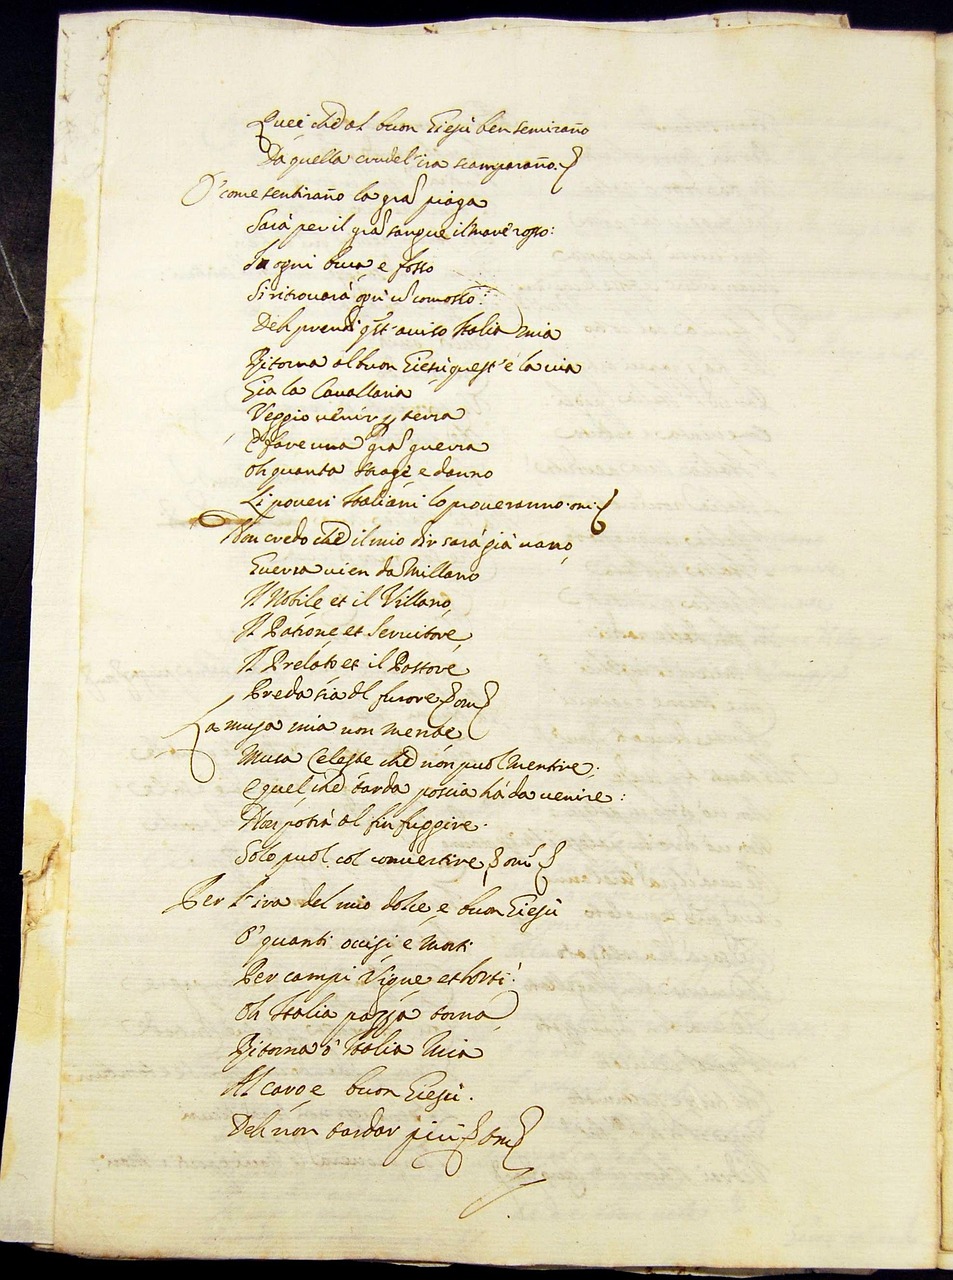 Quei che al buon Giesù ben serviraño
Da quella crudel'ira scamparaño.
O' come sentiraño la grã piaga
Sarà per il grã sangue il mare rosso:
In ogni buca e fosso
Si ritrouarà
Deh prendi qst'auiso Italia mia
Ritorna al buon Giesù quest'è la via
Gia la Cavallaria
Veggio venir p terra
E fare una grã guerra
Oh quanta strage e danno
Li poveri Italiani lo proveranno
Non credo che il mio dir sarà già vano
Guerra vien da Millano
Il Nobile et il Villano
Il Patrone et Servitore
Il Prelato et il Pastore
Preda sia del furore
La musa mia non mente
Musa Celeste che non puol mentire;
E quel che tarda poscia hà da venire:
Non potrà al fin fuggire.
Solo puol col convertire
Per l'ira del mio dolce, e buon Giesù
O' quanti occisi e Morti
Per campi Vigne et horti!
Oh Italia pazza torna
Ritorna ò Italia Mia
Al caro e buon Giesù.
Deh non tardar più